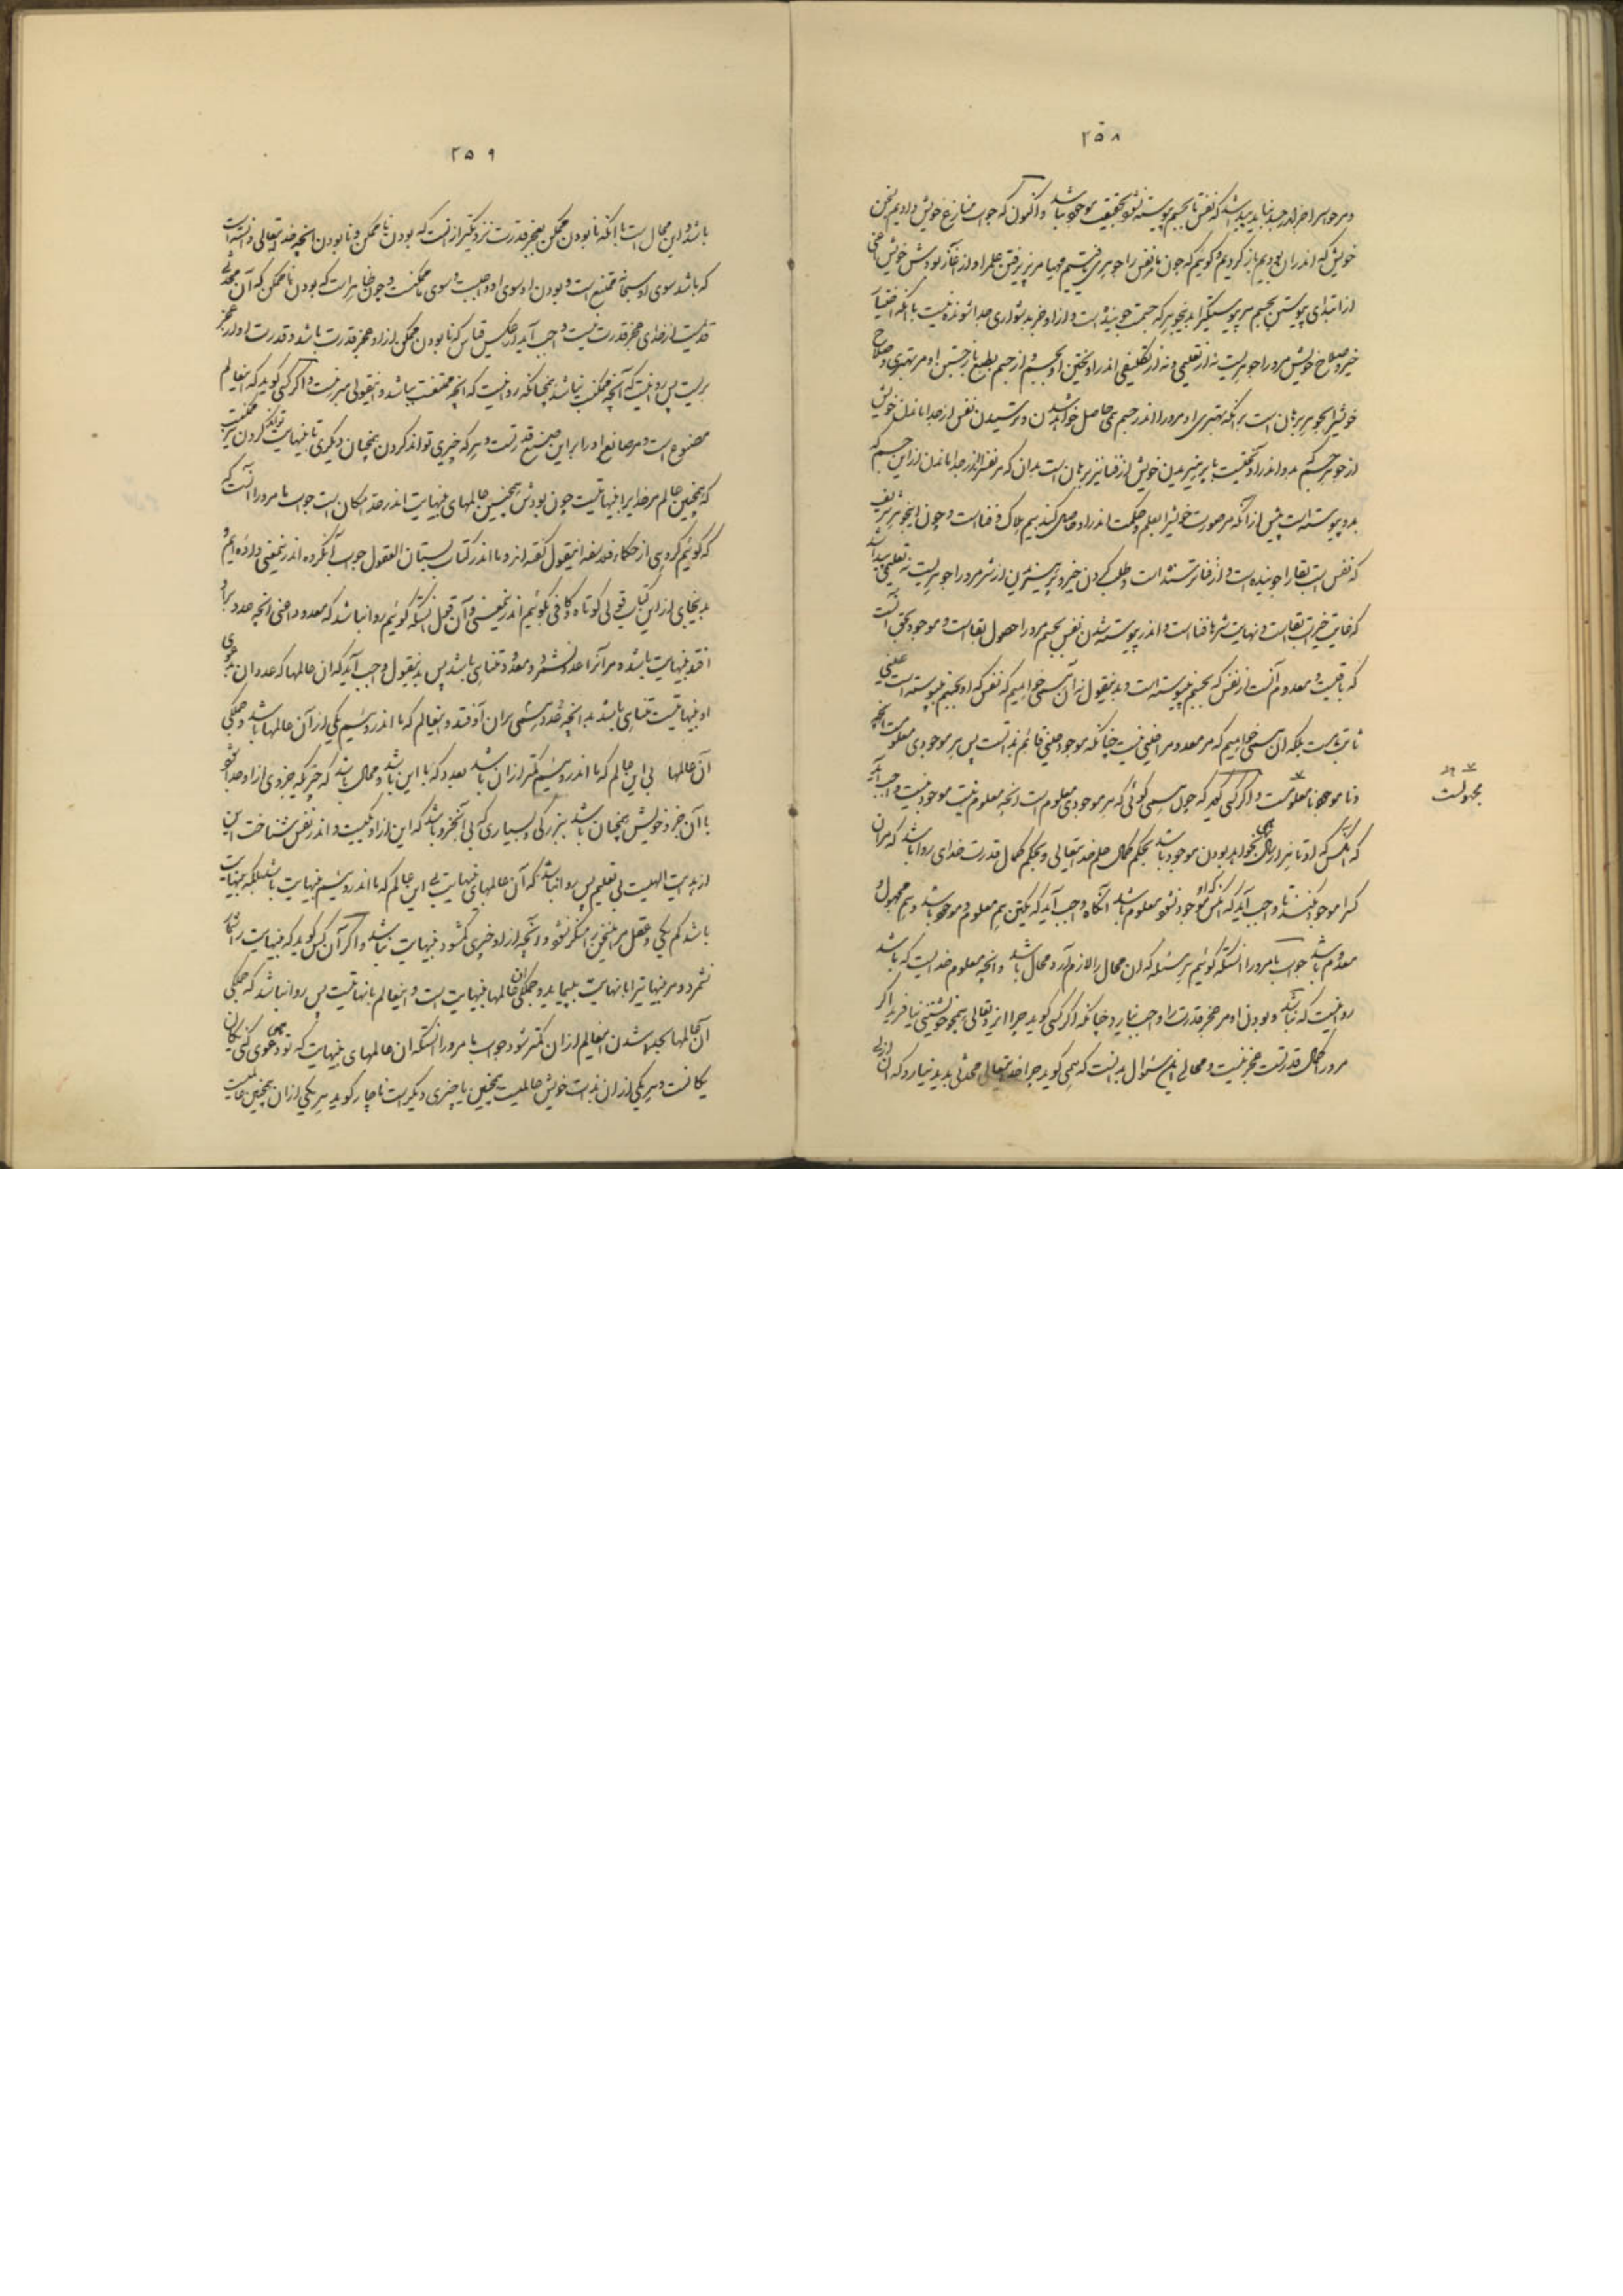 ٢٥٨
و مر جوهر را جز اندر جسد نباید پیدا شد که نفس تا بجسم پیوسته نشود بحقیقت موجود نباشد و اکنون که جواب منازع خویش دادیم بسخن
خویش که اندر آن بودیم باز گردیم و گوییم که چون ما نفس را جوهری یافتیم مهیا مر پذیرفتن علم را و از آغاز بودش خویش اعنی
از ابتدای پیوستن بجسم مر پیوستگی را بدین جوهر که جسمست جوینده است و از او جز بدشواری جدا شونده نیست با آنکه اختیار
خیر و صلاح خویش مرو را جوهریست نه از تعلیمی و نه از تکلیفی اندر آویختن او بجسم و از جسم بطبع باز جستن او مر بهتری و صلاح
خویش را بجوهر برهان است بر آنکه بهتری او مرو را اندر جسم همی حاصل خواهد شدن و ترسیدن نفس از جدا ماندن خویش
از جوهر جسم بدو اندر آویختست یا پرهیزیدن خویش از فنا نیز برهان است بدان که مر نفس را اندر جدا ماندن از این جسم که
بدو پیوسته است پیش از آنکه مر صورت خویش را بعلم و حکمت اندر او حاصل کند بیم هلاک و فنا است و چون این جوهر شریف
که نفس است بقا را جوینده است و از فنا ترسنده است و طلب کردن خیر و پرهیزیدن از شر مرو را جوهریست نه تعلیمی پیدا شد
که غایت خیرات بقاست و نهایت شرها فنا است و اندر پیوسته شدن نفس بجسم مرو را حصول بقا است و موجود بحق آنست
که باقیست و معدوم آنست از نفس که بجسم نپیوسته است و بدین قول نه آن همی خواهیم که نفس که او بجسم نپیوسته است عینی
ثابت است بلکه آن همی خواهیم که مر معدوم را عینی نیست چنانکه موجود عینی قائم بذاتست پس هر موجودی معلومست و هر آنچه
و نا موجود نا معلومست و اگر کسی گوید که چون همی گوئی که هر موجودی معلوم است و آنچه معلوم نیست موجود نیست واجب آید
که آنکس که او تا نیز از ما همی بخواهد بودن موجود باشد بحکم کمال علم خدایتعالی و بحکم کمال قدرت خدای روا باشد که مر آن
کس را موجود نکند تا واجب آید که آنکس که او موجود نشود معلوم باشد آنگاه واجب آید که یکتن هم معلوم و موجود باشد و هم مجهول و
معدوم باشد جواب ما مرو را آنستکه گوئیم هر مسئله که آن محال را لازم آرد محال باشد و آنچه معلوم خداست که باشد
روا نیست که نباشد و نبودن او مر عجز قدرت را واجب نیارد چنانکه اگر کسی گوید چرا ایزد تعالی همچو خویشتنی نیافرید اگر
مرو را کمال قدرتست عجز نیست و محالی این سئوال بدانست که همی گوید چرا خدایتعالی محدثی پدید نیارد که آن ازلی
مجهولست
٢٥٩
باشد و این محال است با آنکه نا بودن ممکن بعجز قدرت نزدیکتر از آنست که بودن نا ممکن و نا بودن آنچه خدایتعالی دانسته است
که باشد سوی او سبحانه ممتنع است و بودن او سوی او واجبست و سوی ما ممکنست و چون ظاهر است که بودن نا ممکن که آن محدثی
قدیمست از خدای عجز قدرت نیست واجب آید از عکس قیاس که نا بودن ممکن از او عجز قدرت باشد و قدرت او از عجز
بریست پس روا نیست که آنچه ممکنست نباشد همچنانکه روا نیست که آنچه ممتنعست بباشد و این قولی مبرهنست و اگر کسی گوید که این عالم
مصنوع است و مر صانع او را بر این صنع قدرتست و هر که چیزی تواند کردن همچنان دیگری تا بی نهایت تواند کردن پس ممکنست
که همچنین عالم مر خدایرا بی نهایتست چون بودش همچنین عالمهای بی نهایت اندر حد امکان است جواب ما مرو را آنست که
که گوئیم گروهی از حکماء فلاسفه این قول گفته اند و ما اندر کتاب بستان العقول جواب آن گروه اندر این معنی داده ایم و
بدین جای از این کتاب قولی کوتاه و کافی بگوئیم اندر این معنی و آن قول آنستکه گوئیم روا نباشد که معدود اعنی آنچه عدد بر او
افتد بی نهایت باشد و مر آنرا عدد بشمرد و معدود متناهی باشد پس بدین قول واجب آید که آن عالمها که عدد آن بدعوی
او بی نهایتست متناهی باشد بدانچه عدد همی بر آن اوفتد و این عالم که ما اندر وئیم یکی از آن عالمها باشد و همگی
آن عالمها بی این عالم که ما اندر وئیم کمتر از آن باشد بعدد که با این باشد و محال باشد که چیزیکه جزوی از او جدا شود
با آن جزو خویش همچنان باشد ببزرگی و بسیاری که بی آنجزو باشد که این از او یکیست و اندر نفس شناخت این
از هدایت الهیست بی تعلیم پس روا نباشد که آن عالمهای بی نهایت بی این عالم که ما اندر وئیم بی نهایت باشد بلکه بی نهایت
باشد کم یکی و عقل مر این سخن را منکر نشود و آنچه از او چیزی کم شود بی نهایت نباشد و اگر آن کس گوید که بی نهایت را شمار
نشمرد و مر بی نهایترا با نهایت نپیماید و همگی آن عالمها بی نهایت است و این عالم با نهایتست پس روا نباشد که همگی
آن عالمها بجدا شدن این عالم از آن کمتر شود جواب ما مرو را آنستکه آن عالمهای بی نهایت که تو همی دعوی کنی یکان
یکانست و هر یکی از آن بذات خویش عالمیست همچنین یا چیزی دیگر است ناچار گوید هر یکی از آن همچنین عالمیست